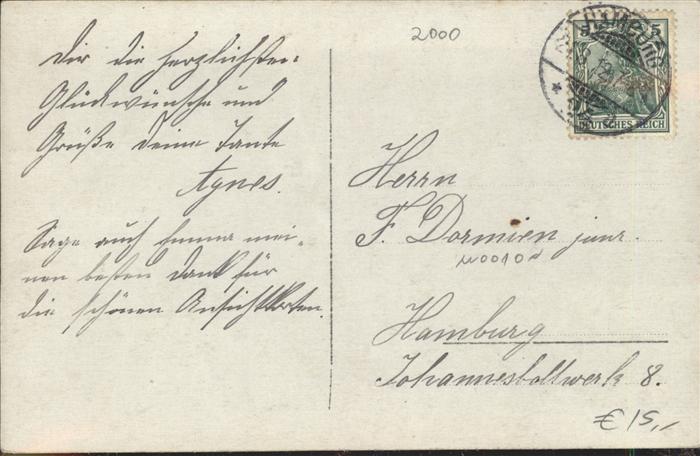 2000
Dir die herzlichsten
Glückwünsche und
Grüße deine Tante
Agnes.
Sage auch Emma mei-
nen besten Dank für
die schönen Ansichtkarten.
HAMBURG
5
DEUTSCHES REICH
Herrn
F. Dormien junr.
Hamburg
Johannesbollwerk 8.
€ 15,-